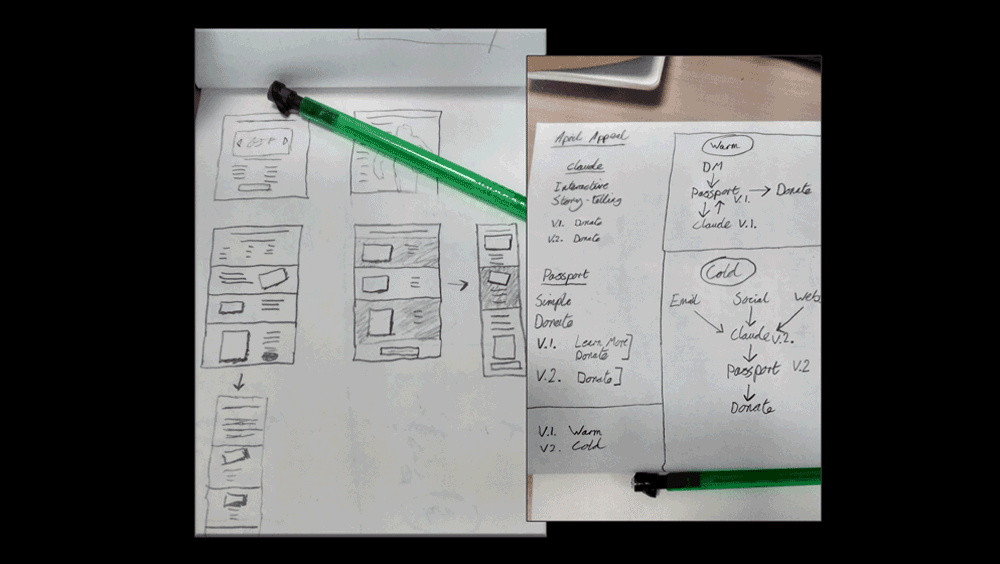 April Appeal
Claude
Interactive
Story-telling
V.1. Donate
V.2. Donate
Passport
Simple
Donate
V.1. Learn More
Donate
V.2. Donate
V.1. Warm
V2. Cold
Warm
DM
Passport V.1. Donate
Claude V.1.
Cold
Email Social Web
Claude V.2.
Passport V.2
Donate